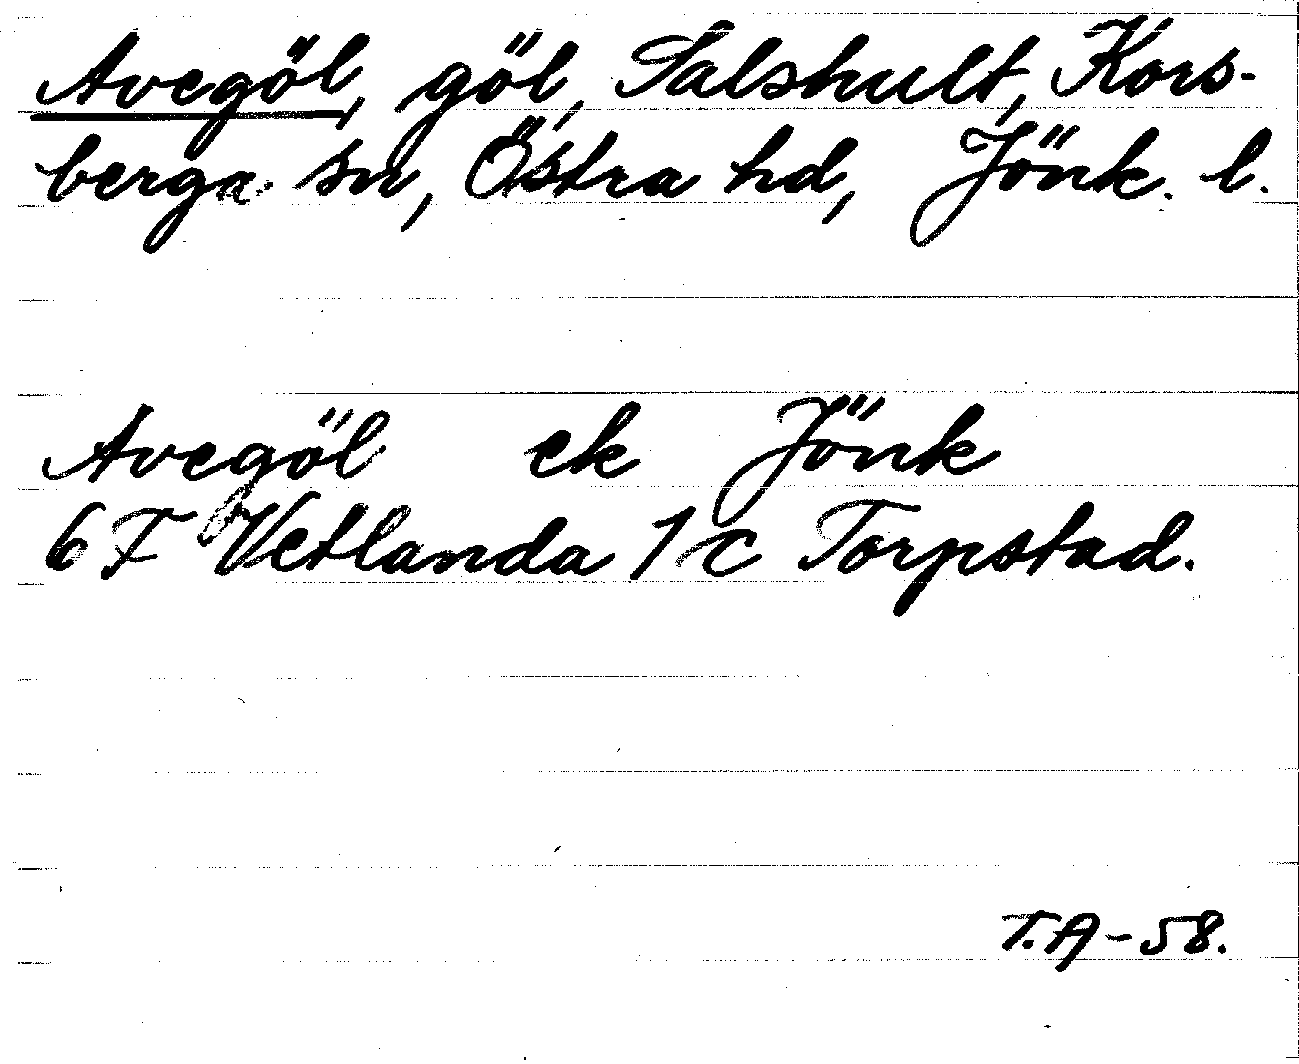 Avegöl, göl, Salshult, Kors-
berga sn, Östra hd, Jönk. l.
Avegöl ek Jönk
6 F Vetlanda 1 c Torpstad.
T.A-58.